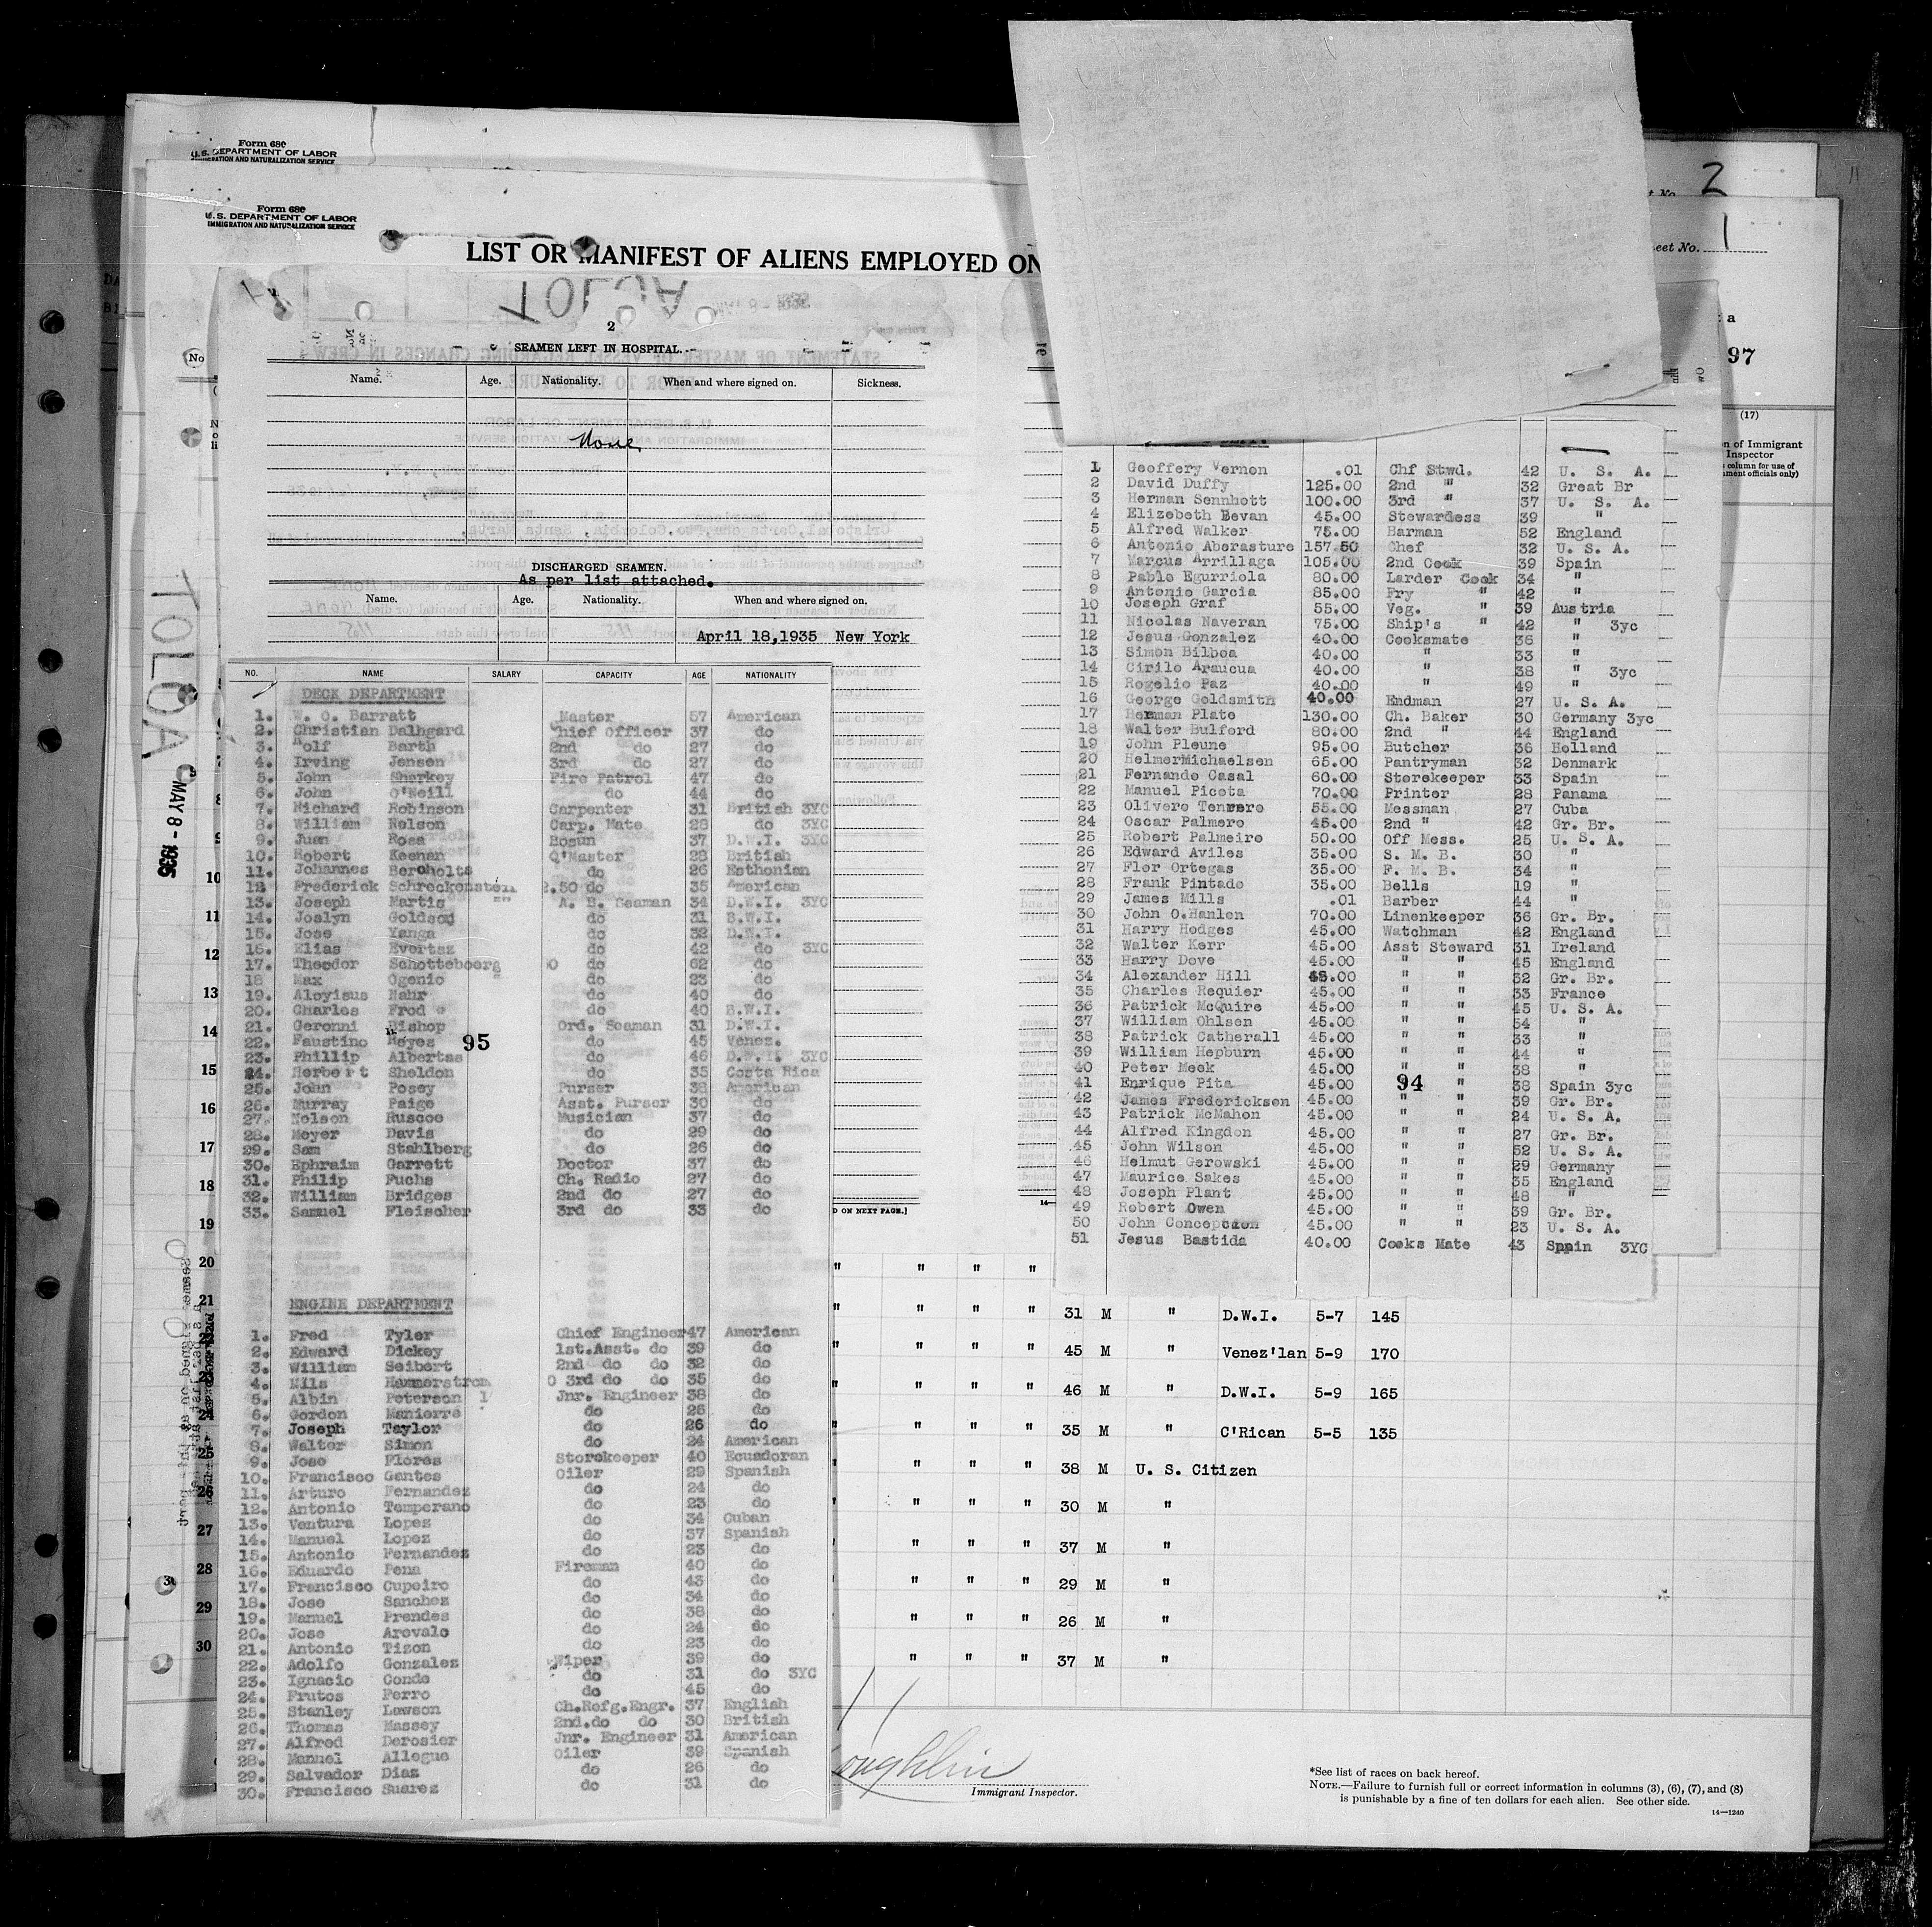 Form 680
U.S. DEPARTMENT OF LABOR
IMMIGRATION AND NATURALIZATION SERVICE
Form 680
U. S. DEPARTMENT OF LABOR
IMMIGRATION AND NATURALIZATION SERVICE
2
Sheet No. 1
LIST OR MANIFEST OF ALIENS EMPLOYED ON
TOLOA
97
(17)
2
SEAMEN LEFT IN HOSPITAL.
Name. Age. Nationality. When and where signed on. Sickness.
None
DISCHARGED SEAMEN.
As per list attached.
Name. Age. Nationality. When and where signed on.
April 18,1935 New York
TOLOA
MAY 8 - 1935
NO. NAME SALARY CAPACITY AGE NATIONALITY
DECK DEPARTMENT
1. W. O. Barratt Master 57 American
2. Christian Dalhgard Chief Officer 37 do
3. Rolf Barth 2nd do 27 do
4. Irving Jensen 3rd do 27 do
5. John Sharkey Fire Patrol 47 do
6. John O'Neill do 44 do
7. Richard Robinson Carpenter 31 British 3YC
8. William Nelson Carp. Mate 28 do 3YC
9. Juan Rosa Bosun 37 D.W.I. 3YC
10. Robert Keenan Q'Master 28 British
11. Johannes Bercholts do 26 Esthonian
12 Frederick Schreckenstein 2.50 do 35 American
13. Joseph Martis A. B. Seaman 34 D.W.I. 3YC
14. Joslyn Goldson do 31 B.W.I.
15. Jose Yanga do 32 D.W.I.
16. Elias Evertsz do 42 do 3YC
17. Theodor Schotteboerg 0 do 62 do
18 Max Ogenio do 23 do
19. Aloyisus Nahr do 40 do
20. Charles Frod do 40 B.W.I.
21. Geronni Bishop Ord. Seaman 31 D.W.I.
22. Faustino Reyes 95 do 45 Venez.
23. Phillip Albertas do 46 D.W.I. 3YC
24. Herbert Sheldon do 35 Costa Rica
25. John Posey Purser 38 American
26. Murray Paige Asst. Purser 30 do
27. Nelson Ruscoe Musician 37 do
28. Meyer Davis do 29 do
29. Sam Stahlberg do 26 do
30. Ephraim Garrett Doctor 37 do
31. Philip Fuchs Ch. Radio 27 do
32. William Bridges 2nd do 27 do
33. Samuel Fleischer 3rd do 33 do
ENGINE DEPARTMENT
1. Fred Tyler Chief Engineer 47 American
2. Edward Dickey 1st.Asst. do 39 do
3. William Seibert 2nd do do 32 do
4. Nils Hammerstrom 0 3rd do do 35 do
5. Albin Peterson 1 Jnr. Engineer 38 do
6. Gordon Manierre do 25 do
7. Joseph Taylor do 26 do
8. Walter Simon do 24 American
9. Jose Flores Storekeeper 40 Ecuadoran
10. Francisco Gantes Oiler 29 Spanish
11. Arturo Fernandez do 24 do
12. Antonio Temperano do 23 do
13. Ventura Lopez do 34 Cuban
14. Manuel Lopez do 37 Spanish
15. Antonio Fernandez do 23 do
16. Eduardo Pena Fireman 40 do
17. Francisco Cupeiro do 43 do
18. Jose Sanchez do 34 do
19. Manuel Prendes do 38 do
20. Jose Arevalo do 24 do
21. Antonio Tizon do 23 do
22. Adolfo Gonzalez Wiper 39 do
23. Ignacio Conde do 31 do 3YC
24. Frutos Ferro do 45 do
25. Stanley Lawson Ch.Refg.Engr. 37 English
26. Thomas Massey 2nd.do do 30 British
27. Alfred Derosier Jnr. Engineer 31 American
28. Manuel Allegue Oiler 39 Spanish
29. Salvador Diaz do 26 do
30. Francisco Suarez do 31 do
1 Geoffery Vernon .01 Chf Stwd. 42 U. S. A.
2 David Duffy 125.00 2nd " 32 Great Br
3 Herman Sennhott 100.00 3rd " 37 U. S. A.
4 Elizebeth Bevan 45.00 Stewardess 39 "
5 Alfred Walker 75.00 Barman 52 England
6 Antonio Aberasture 157.50 Chef 32 U. S. A.
7 Marcus Arrillaga 105.00 2nd Cook 39 Spain
8 Pablo Egurriola 80.00 Larder Cook 34 "
9 Antonio Garcia 85.00 Fry " 42 "
10 Joseph Graf 55.00 Veg. " 39 Austria
11 Nicolas Naveran 75.00 Ship's " 42 " 3yc
12 Jesus Gonzalez 40.00 Cooksmate 36 "
13 Simon Bilboa 40.00 " 33 "
14 Cirilo Araucua 40.00 " 38 " 3yc
15 Rogelio Paz 40.00 " 49 "
16 George Goldsmith 40.00 Endman 27 U. S. A.
17 Herman Plate 130.00 Ch. Baker 30 Germany 3yc
18 Walter Bulford 80.00 2nd " 44 England
19 John Pleune 95.00 Butcher 36 Holland
20 HelmerMichaelsen 65.00 Pantryman 32 Denmark
21 Fernando Casal 60.00 Storekeeper 33 Spain
22 Manuel Picota 70.00 Printer 28 Panama
23 Olivero Tenrero 55.00 Messman 27 Cuba
24 Oscar Palmero 45.00 2nd " 42 Gr. Br.
25 Robert Palmeiro 50.00 Off Mess. 25 U. S. A.
26 Edward Aviles 35.00 S. M. B. 30 "
27 Fler Ortegas 35.00 F. M. B. 34 "
28 Frank Pintado 35.00 Bells 19 "
29 James Mills .01 Barber 44 "
30 John O.Hanlen 70.00 Linenkeeper 36 Gr. Br.
31 Harry Hodges 45.00 Watchman 42 England
32 Walter Kerr 45.00 Asst Steward 31 Ireland
33 Harry Dove 45.00 " " 45 England
34 Alexander Hill 45.00 " " 52 Gr. Br.
35 Charles Requier 45.00 " " 33 France
36 Patrick McQuire 45.00 " " 45 U. S. A.
37 William Ohlsen 45.00 " " 54 "
38 Patrick Catherall 45.00 " " 33 "
39 William Hepburn 45.00 " " 44 "
40 Peter Meek 45.00 " " 38 "
41 Enrique Pita 45.00 94 " 38 Spain 3yc
42 James Fredericksen 45.00 " " 39 Gr. Br.
43 Patrick McMahon 45.00 " " 24 U. S. A.
44 Alfred Kingdon 45.00 " " 27 Gr. Br.
45 John Wilson 45.00 " " 52 U. S. A.
46 Helmut Gerowski 45.00 " " 29 Germany
47 Maurice Sakes 45.00 " " 35 England
48 Joseph Plant 45.00 " " 48 "
49 Robert Owen 45.00 " " 39 Gr. Br.
50 John Conception 45.00 " " 23 U. S. A.
51 Jesus Bastida 40.00 Cooks Mate 43 Spain 3YC
D ON NEXT PAGE.]
" " " "
" " " " 31 M " D.W.I. 5-7 145
" " " " 45 M " Venez'lan 5-9 170
" " " " 46 M " D.W.I. 5-9 165
" " " " 35 M " C'Rican 5-5 135
" " " " 38 M U. S. Citizen
" " " " 30 M "
" " " 37 M "
" " " 29 M "
" " " 26 M "
" " " 37 M "
Immigrant Inspector.
*See list of races on back hereof.
NOTE.—Failure to furnish full or correct information in columns (3), (6), (7), and (8)
is punishable by a fine of ten dollars for each alien. See other side.
14—1240